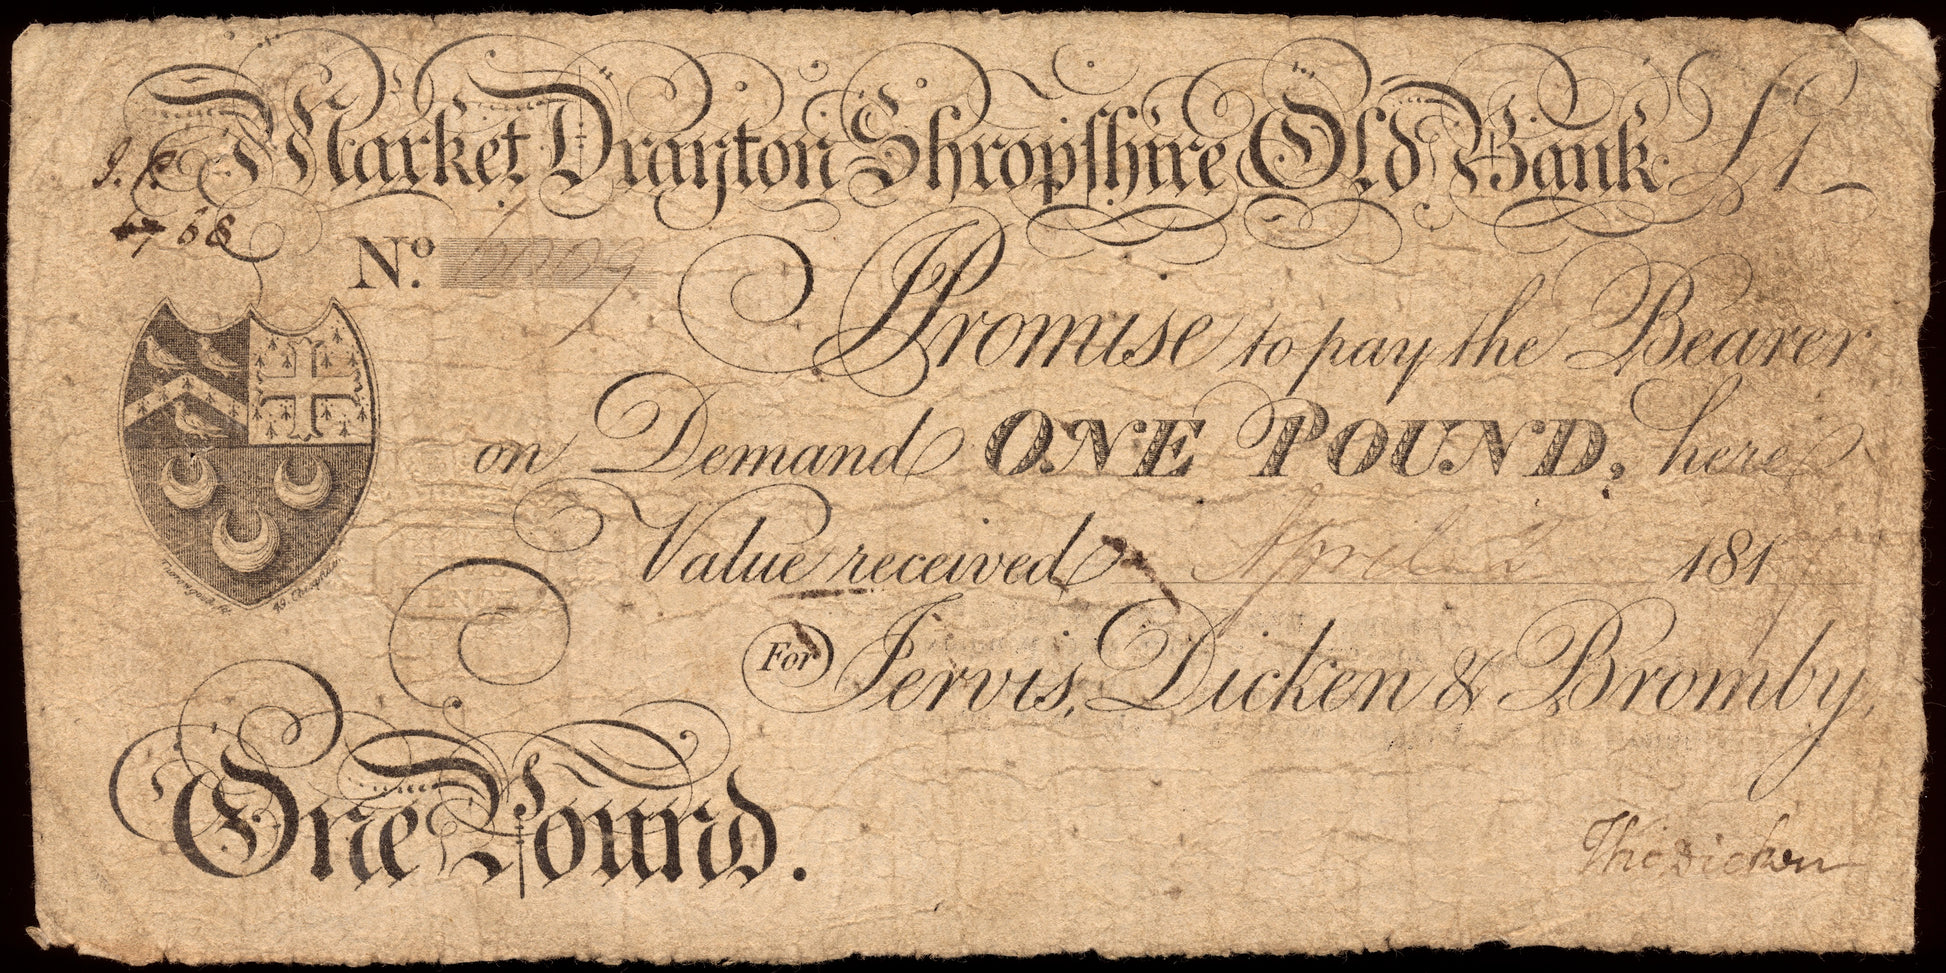 Market Drayton Shropſhire Old Bank £1
68
No.
Promise to pay the Bearer
on Demand ONE POUND, here
Value received April 2 1817
For Jervis, Dicken & Bromby,
One Pound.
Tho Dicken